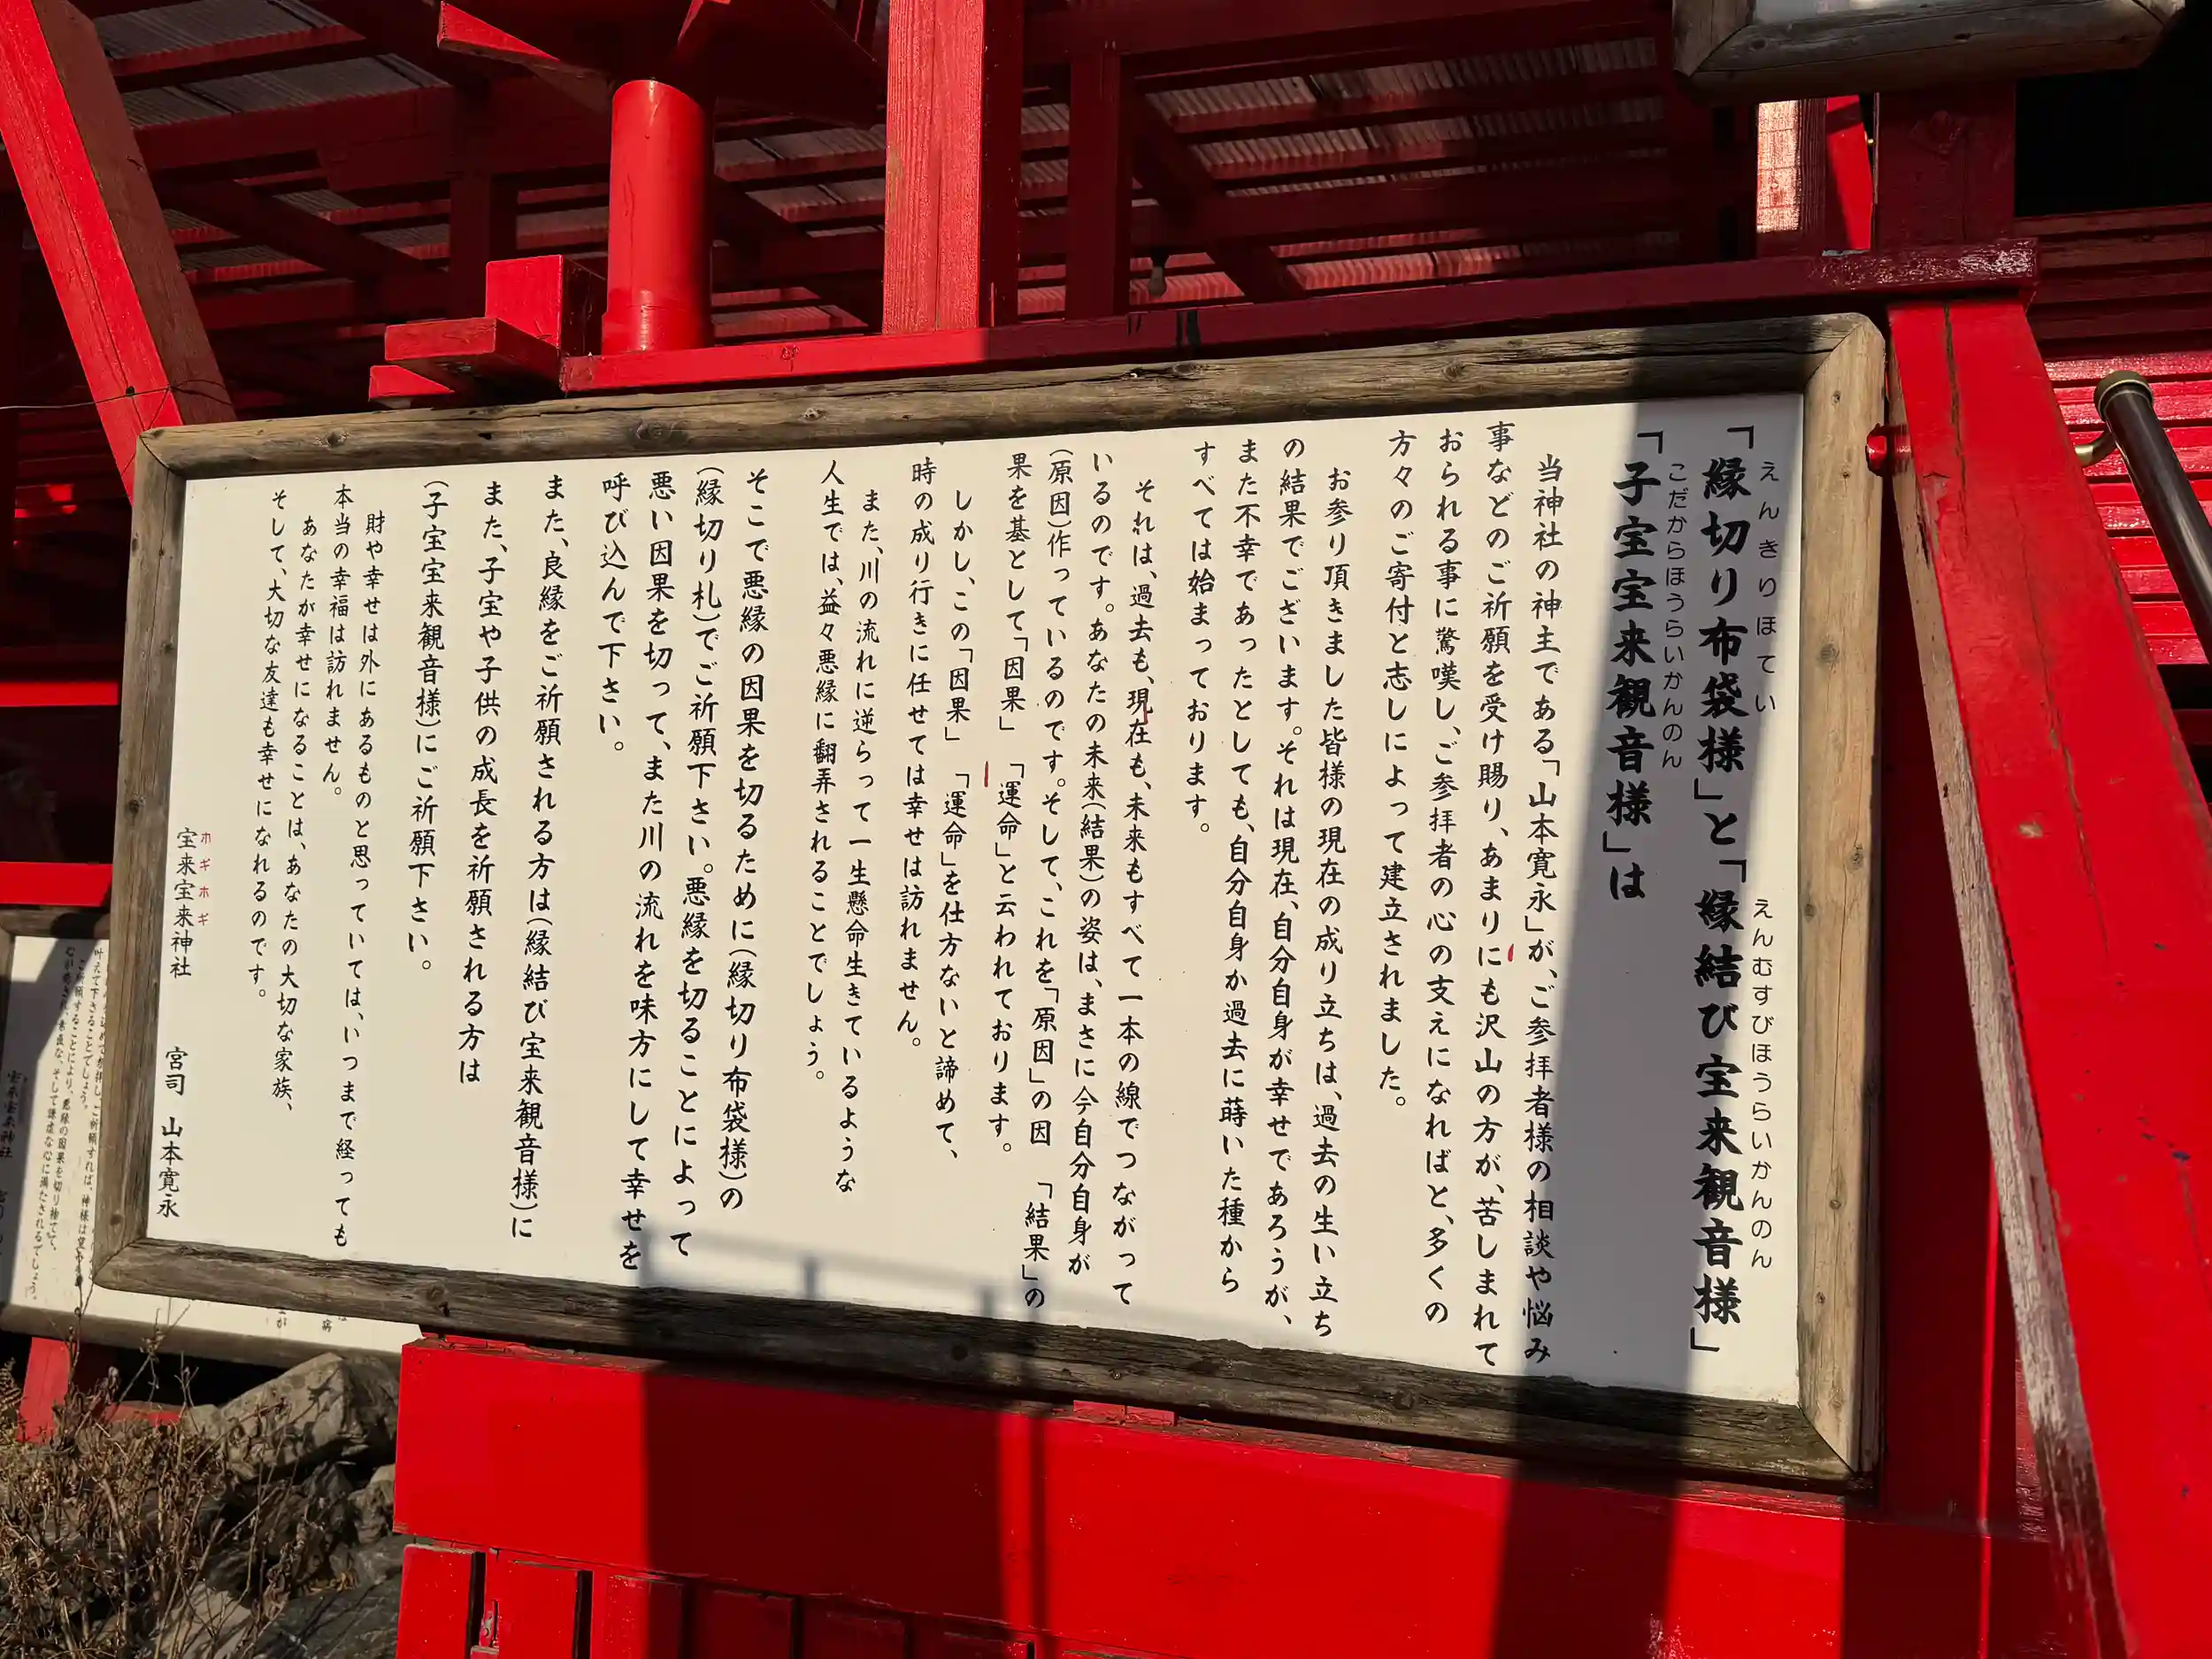 「縁切り布袋様」と「縁結び宝来観音様」
えんきりほてい
えんむすびほうらいかんのん
「子宝宝来観音様」は
こだからほうらいかんのん
当神社の神主である「山本寛永」が、ご参拝者様の相談や悩み
事などのご祈願を受け賜り、あまりにも沢山の方が、苦しまれて
おられる事に驚嘆し、ご参拝者の心の支えになればと、多くの
方々のご寄付と志しによって建立されました。
お参り頂きました皆様の現在の成り立ちは、過去の生い立ち
の結果でございます。それは現在、自分自身が幸せであろうが、
また不幸であったとしても、自分自身か過去に蒔いた種から
すべては始まっております。
それは、過去も、現在も、未来もすべて一本の線でつながって
いるのです。あなたの未来(結果)の姿は、まさに今自分自身が
(原因)作っているのです。そして、これを「原因」の因 「結果」の
果を基として「因果」 「運命」と云われております。
しかし、この「因果」 「運命」を仕方ないと諦めて、
時の成り行きに任せては幸せは訪れません。
また、川の流れに逆らって一生懸命生きているような
人生では、益々悪縁に翻弄されることでしょう。
そこで悪縁の因果を切るために(縁切り布袋様)の
(縁切り札)でご祈願下さい。悪縁を切ることによって
悪い因果を切って、また川の流れを味方にして幸せを
呼び込んで下さい。
また、良縁をご祈願される方は(縁結び宝来観音様)に
また、子宝や子供の成長を祈願される方は
(子宝宝来観音様)にご祈願下さい。
財や幸せは外にあるものと思っていては、いつまで経っても
本当の幸福は訪れません。
あなたが幸せになることは、あなたの大切な家族、
そして、大切な友達も幸せになれるのです。
ホギホギ
宝来宝来神社 宮司 山本寛永